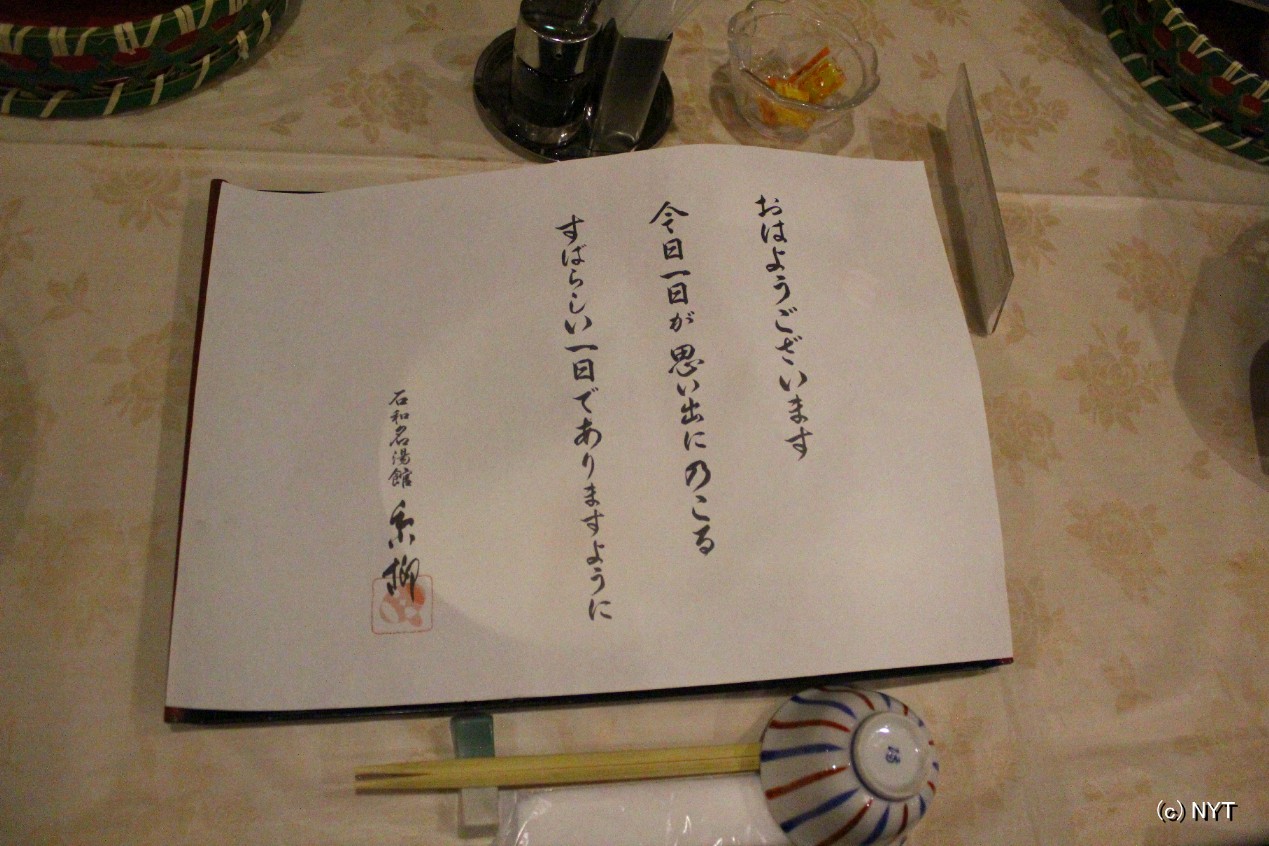 おはようございます
今日一日が思い出にのこる
すばらしい一日でありますように
石和名湯館
糸柳
(c) NYT